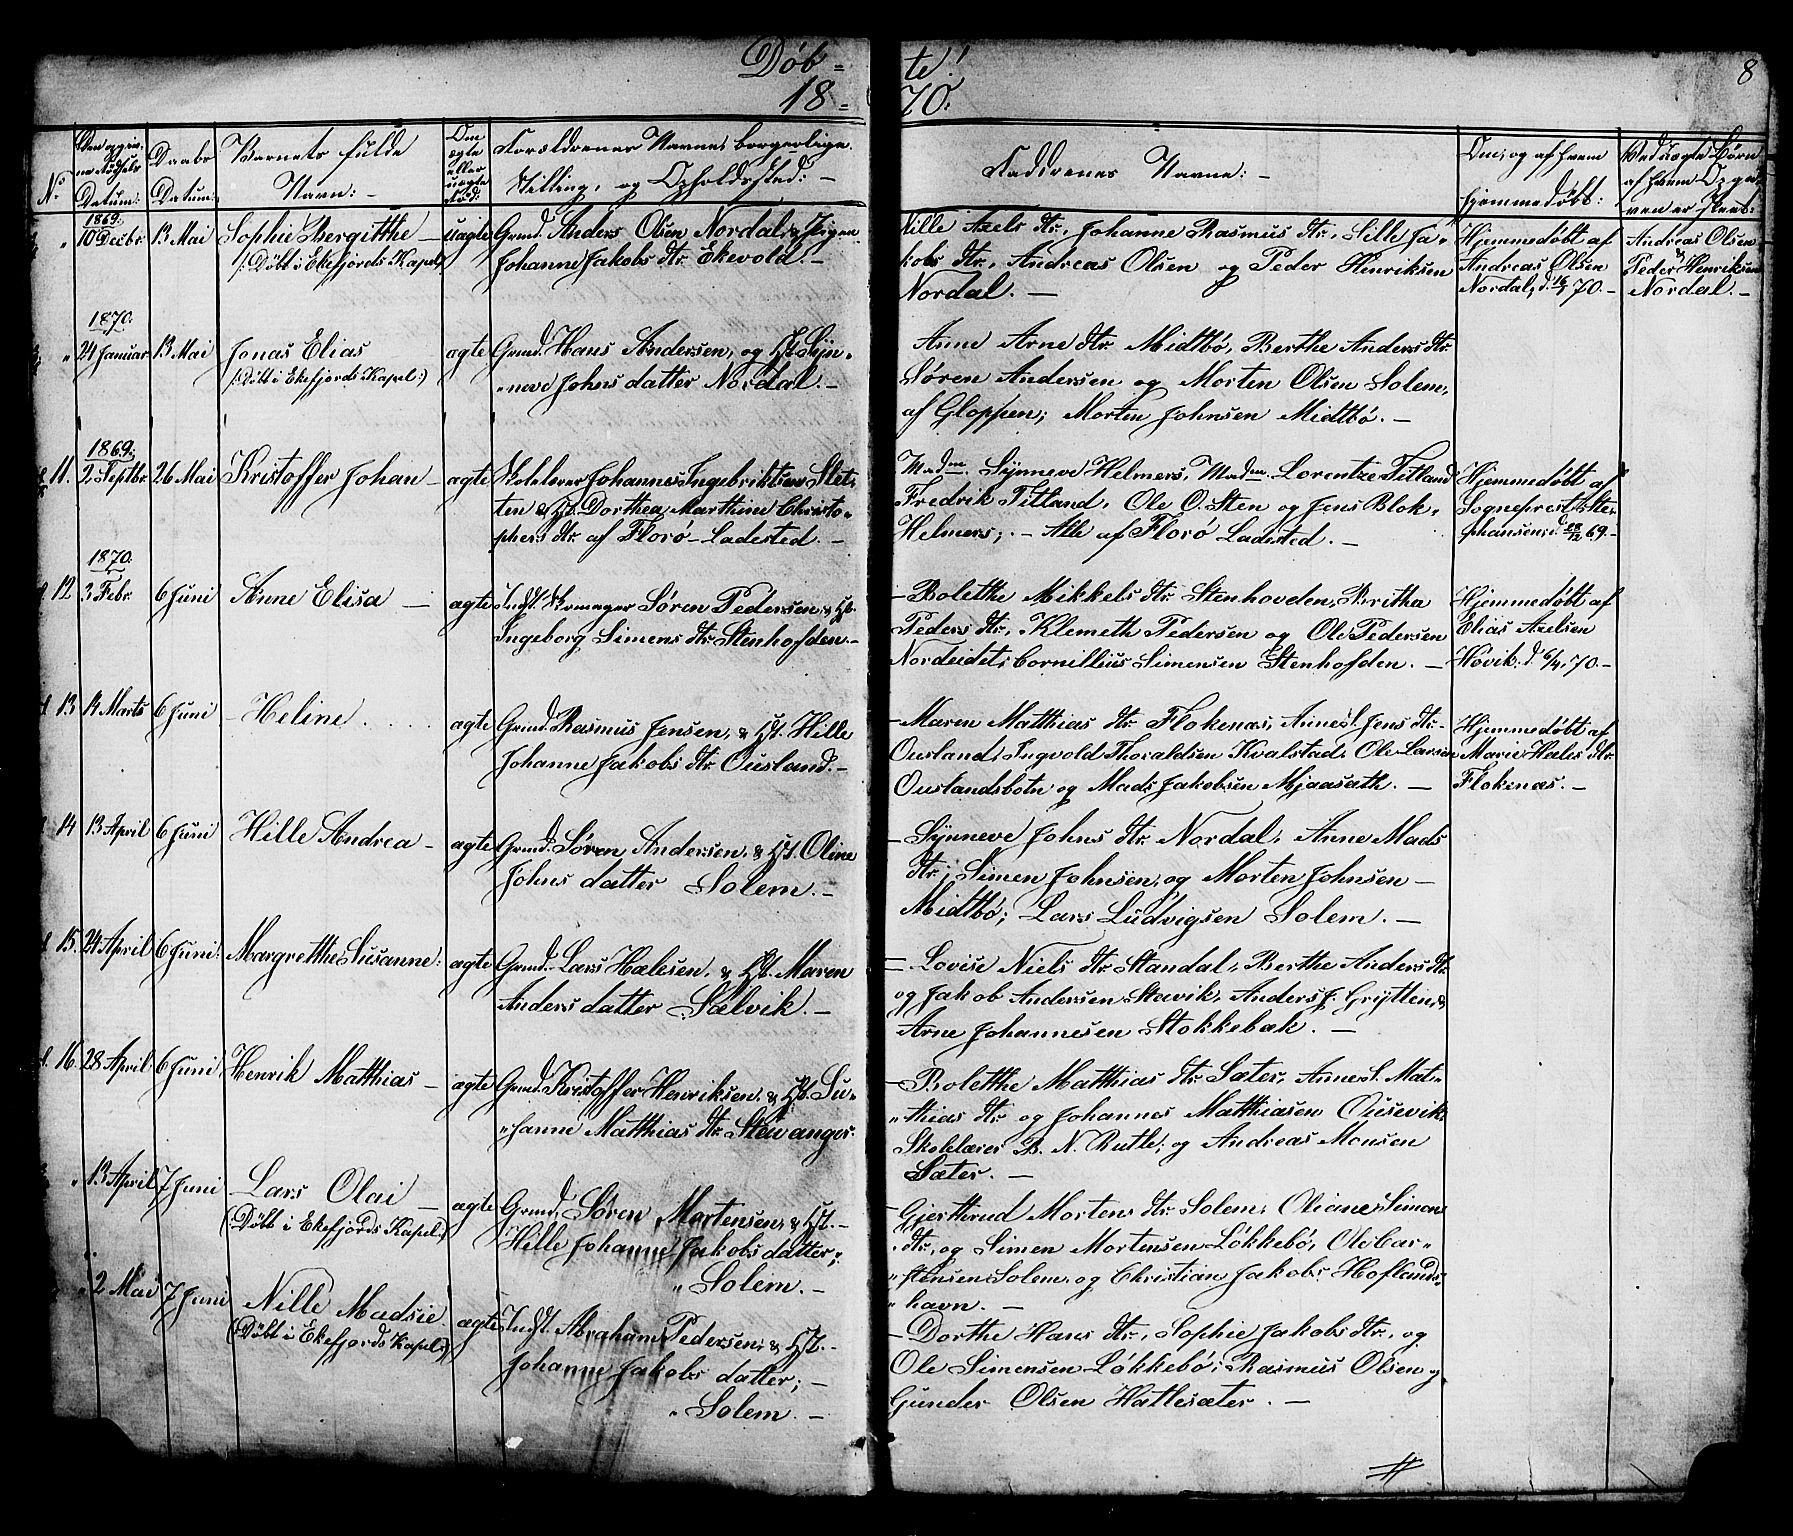 Døb= te!
18= 70.
8
No
Den opgivne Fødsels Datum:
Daabs Datum:
Barnets fulde Navn: –
Om ægte eller uægte fød:
Forældrenes Navne, borgerlige Stilling, og Opholdssted: –
Faddrenes Navne: –
Om, og af hvem hjemmedøbt:
Ved uægte Børn af hvem Opgiven er skeet:
1869.
" 10 Decbr. 13 Mai Sophie Bergitthe – uægte Grmd. Anders Olsen Nordal, & Pigen
(: Døbt i Ekefjords Kapel:) Johanne Jakobs dtr. Ekevold. –
Nille Axels dtr, Johanne Rasmus dtr, Sille Ja=
kobs dtr, Andreas Olsen og Peder Henriksen
Nordal. –
Hjemmedøbt af
Andreas Olsen
Nordal, d. 16/1 70. –
Andreas Olsen
& Peder Henriksen
Nordal. –
1870.
" 24 Januar 13 Mai Jonas Elias ægte Grmd. Hans Andersen, og Hst. Syn=
(: Døbt i Ekefjords Kapel:) "neve Johns datter Nordal. –
Anne Arne dtr. Midtbø, Berthe Anders dtr.
Søren Andersen og Morten Olsen Solem,
af Gloppen; Morten Johnsen Midtbø. –
1869.
11. 2 Septbr. 26 Mai Kristoffer Johan – ægte Skolelærer Johannes Ingebriktsen Slet=
ten & Hst. Dorthea Marthine Christo=
phers dtr. af Florø Ladested. –
Madm. Synneve Helmers, Madm. Lorentze Fetland
Fredrik Fetland, Ole O. Sten og Jens Blok,
Helmers; – Alle af Florø Ladested. –
Hjemmedøbt af
Sogneprest Ste=
phansen; d. 28/12 69. –
1870.
12 3 Febr. 6 Juni Anne Elisa – ægte Indst. Skomager Søren Pedersen, & Hst.
Ingeborg Simens dtr. Stenhofden. –
– Bolethe Mikkels dtr. Stenhovden, Britha
Peders dtr, Klemeth Pedersen og Ole Pedersen
Nordeidet, Cornillius Simensen Stenhofden. –
Hjemmedøbt af
Elias Axelsen
Høvik. d. 6/4, 70. –
13 14 Marts 6 Juni – Heline ægte Grmd. Rasmus Jensen, & Hst. Hille
Johanne Jakobs dtr. Ousland. –
– Maren Matthias dtr. Flokenæs, Anne S. Jens dtr.
Ousland, Ingvold Thoraldsen Kvalstad, Ole Larsen
Ouslandsbotn og Mads Jakobsen Mjaasath. –
Hjemmedøbt af
Marie Hæles dtr.
Flokenæs. –
14 13 April 6 Juni Hille Andrea – ægte Grmd. Søren Andersen, & Hst. Oline
Johns datter Solem. –
– Synneve Johns dtr. Nordal, Anne Mads
dtr; Simen Johnsen, og Morten Johnsen –
Midtbø; Lars Ludvigsen Solem. –
15. 24 April 6 Juni Margrethe Susanne: ægte Grmd. Lars Hælesen, & Hst. Maren
Anders datter Sælvik. –
– Lovise Niels dtr. Standal, Berthe Anders dtr.
og Jakob Andersen Stavik, Anders J. Grytten, &
Arne Johannesen Stokkebæk. –
16. 28 April 6 Juni Henrik Matthias – ægte Grmd. Kristoffer Henriksen, & Hst. Su=
"sanne Matthias dtr. Stavanger.
– Bolethe Matthias dtr. Sæter, Anne S. Mat=
"thias dtr. og Johannes Matthiasen Ousevik
Skolelærer B. N. Rutle; og Andreas Monsen
Sæter. –
" 13 April 7 Juni Lars Olai – ægte Grmd. Søren Mortensen, & Hst. –
(Døbt i Ekefjords Kapel:) Hille Johanne Jakobs datter;
" Solem. –
– Gjerthrud Mortens dtr. Solem, Oliane Simons
dtr, og Simen Mortensen Løkkebø, Ole Car=
"stensen Solem, og Christian Jakobs. Hoflands=
"havn. –
" 2 Mai 7 Juni Nille Madsie. ægte Indst. Abraham Pedersen, & Hst. –
(Døbt i Ekefjords Kapel:) Johanne Jakobs datter; –
" Solem. –
– Dorthe Hans dtr, Sophie Jakobs dtr, og
Ole Simensen Løkkebø; Rasmus Olsen og
Gunder Olsen Hatlesæter. –